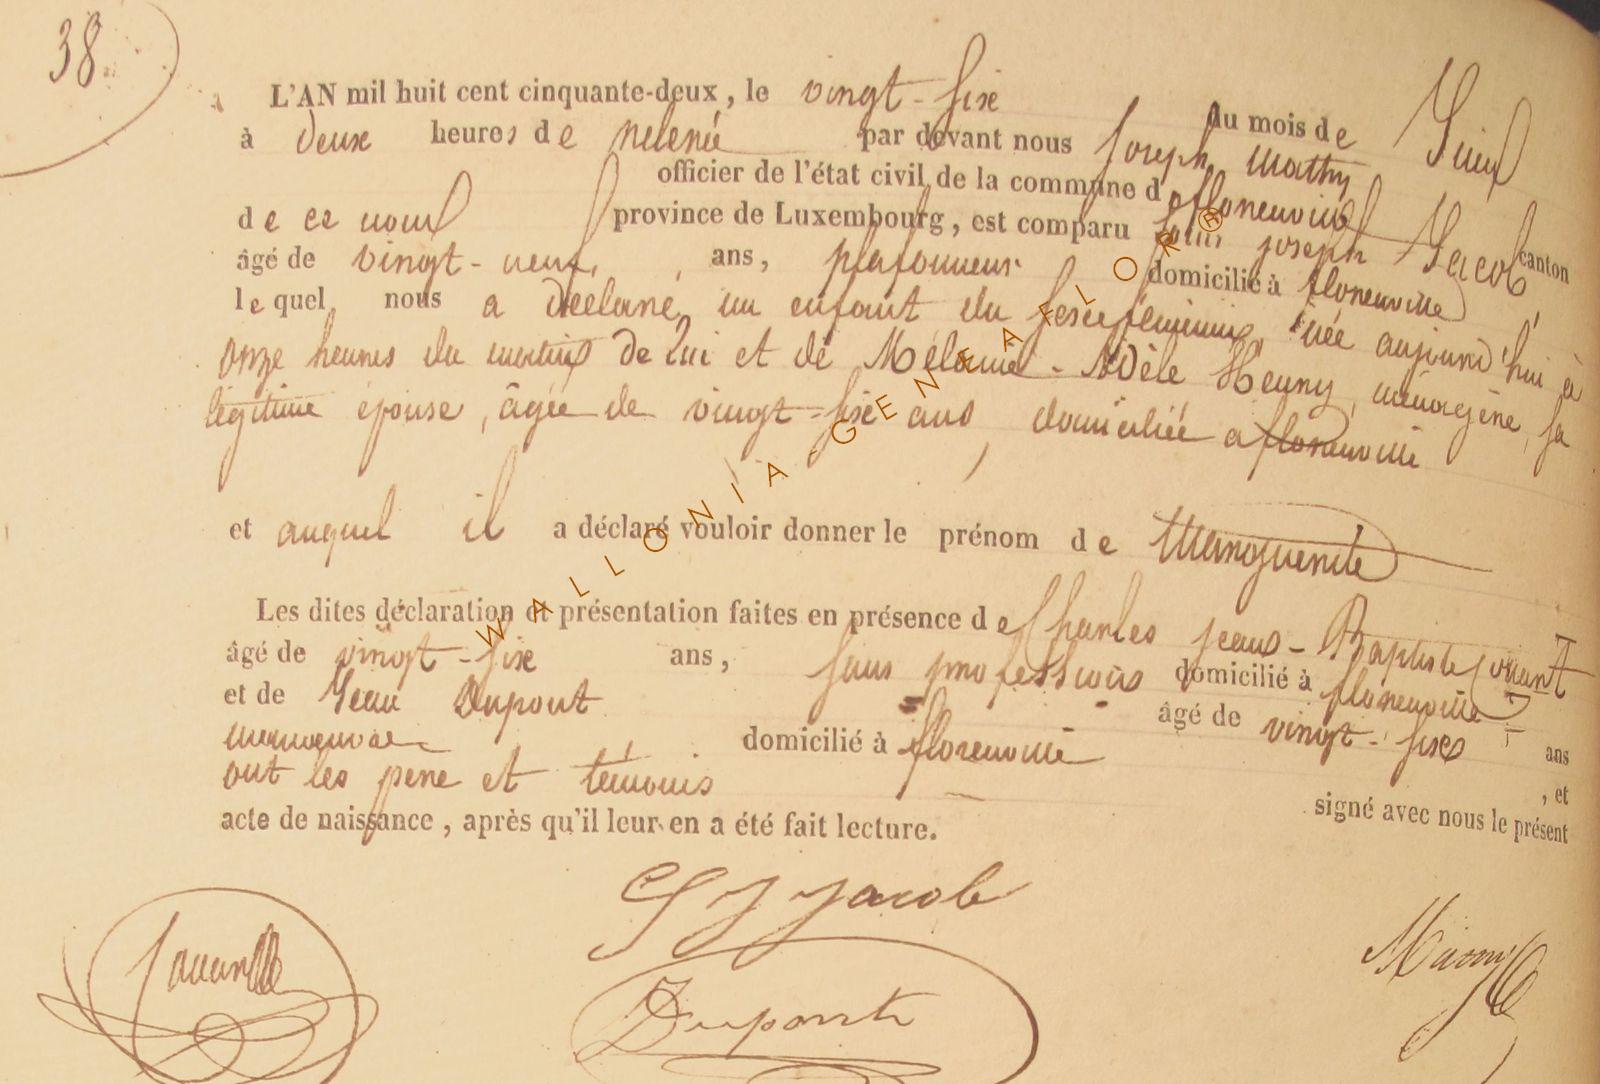 38
L'AN mil huit cent cinquante-deux, le vingt-six du mois de Juin
à deux heures de relevée par devant nous Joseph Mathy
officier de l'état civil de la commune de florenville canton
de ce nom province de Luxembourg, est comparu Louis Joseph Jacob
âgé de vingt-neuf ans, plafonneur domicilié à florenville,
lequel nous a déclaré un enfant du sexe féminin, née aujourd'hui à
onze heures du matin de lui et de Mélanie-Adèle Henry, ménagère, sa
légitime épouse, âgée de vingt-six ans, domiciliée a florenville
et auquel il a déclaré vouloir donner le prénom de Marguerite
Les dites déclaration et présentation faites en présence de Charles Jean-Baptiste
âgé de vingt-six ans, sans profession domicilié à florenville
et de Jean Dupont âgé de vingt-six ans
domicilié à florenville, et
ont les père et témoins signé avec nous le présent
acte de naissance, après qu'il leur en a été fait lecture.
Jacob
Dupont
WALLONIA-GENEAFLOR®